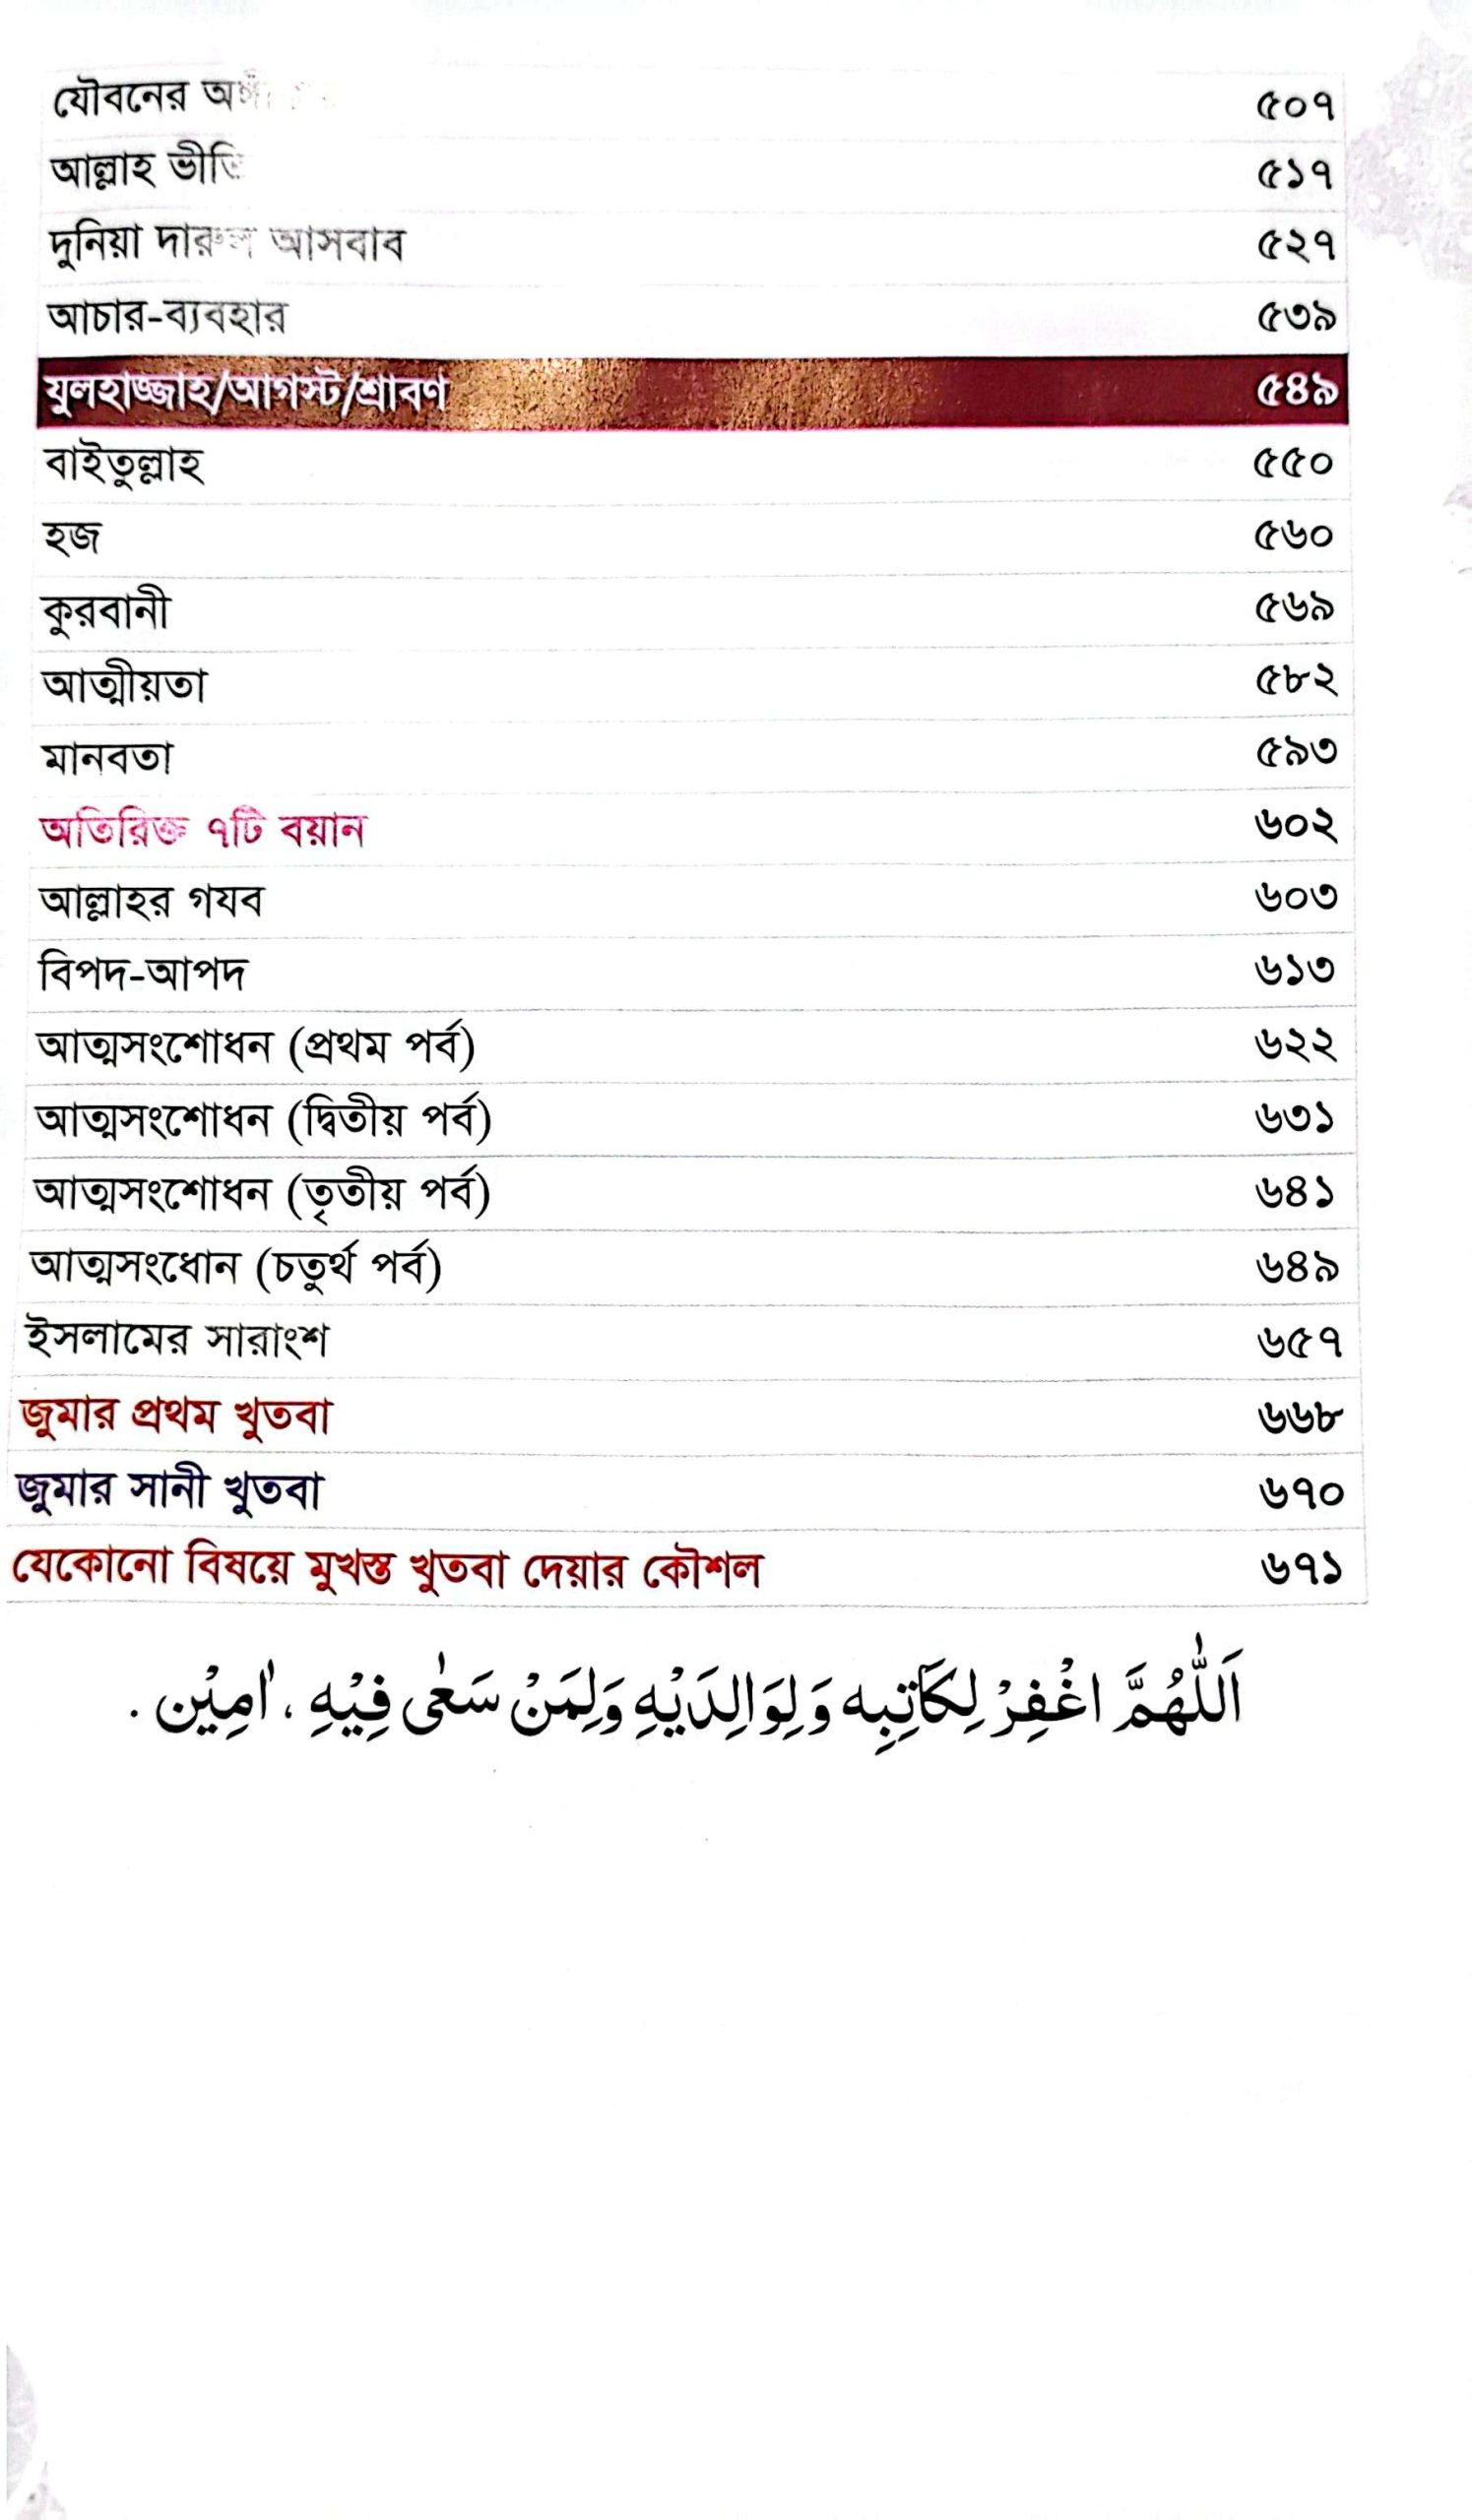 যৌবনের ৫০৭
আল্লাহ ভীতি ৫১৭
দুনিয়া দারুল আসবাব ৫২৭
আচার-ব্যবহার ৫৩৯
যুলহাজ্জাহ/আগস্ট/শ্রাবণ ৫৪৯
বাইতুল্লাহ ৫৫০
হজ ৫৬০
কুরবানী ৫৬৯
আত্মীয়তা ৫৮২
মানবতা ৫৯৩
অতিরিক্ত ৭টি বয়ান ৬০২
আল্লাহর গযব ৬০৩
বিপদ-আপদ ৬১৩
আত্মসংশোধন (প্রথম পর্ব) ৬২২
আত্মসংশোধন (দ্বিতীয় পর্ব) ৬৩১
আত্মসংশোধন (তৃতীয় পর্ব) ৬৪১
আত্মসংধোন (চতুর্থ পর্ব) ৬৪৯
ইসলামের সারাংশ ৬৫৭
জুমার প্রথম খুতবা ৬৬৮
জুমার সানী খুতবা ৬৭০
যেকোনো বিষয়ে মুখস্ত খুতবা দেয়ার কৌশল ৬৭১
اَللّٰهُمَّ اغْفِرْ لِكَاتِبِه وَلِوَالِدَيْهِ وَلِمَنْ سَعٰى فِيْهِ ، اٰمِيْن .